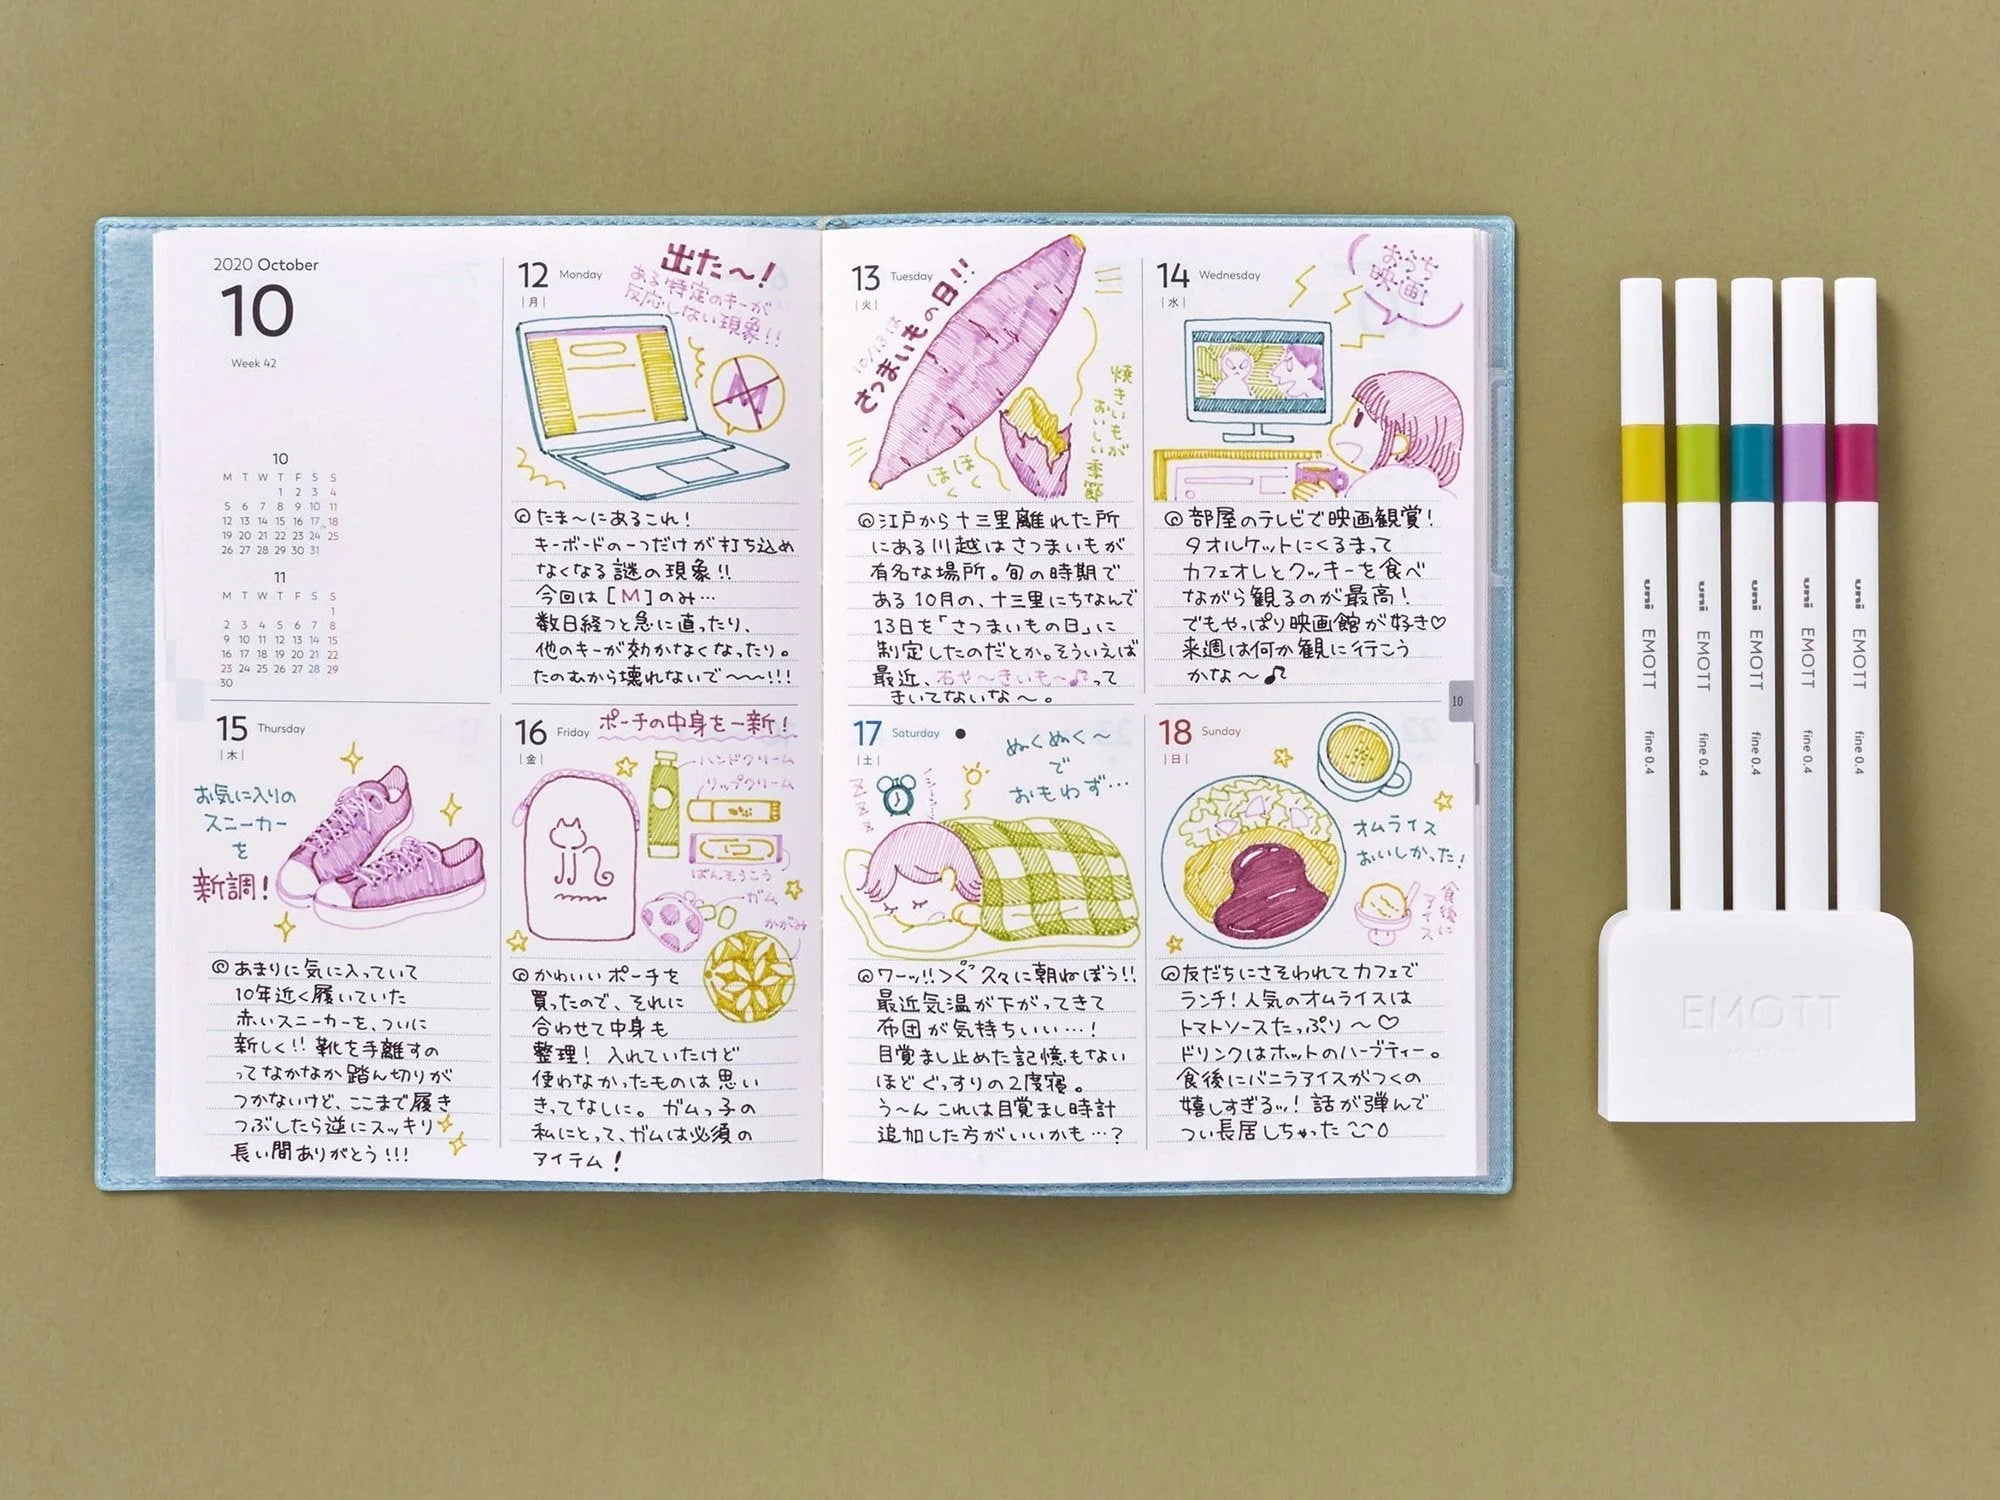 2020 October
10
Week 42
10
M T W T F S S
1 2 3 4
5 6 7 8 9 10 11
12 13 14 15 16 17 18
19 20 21 22 23 24 25
26 27 28 29 30 31
11
M T W T F S S
1
2 3 4 5 6 7 8
9 10 11 12 13 14 15
16 17 18 19 20 21 22
23 24 25 26 27 28 29
30
12 Monday
|月|
出た〜!
ある特定のキーが
反応しない現象!!
M
たま〜にあるこれ!
キーボードの一つだけが打ち込め
なくなる謎の現象!!
今回は[M]のみ…
数日経つと急に直ったり、
他のキーが効かなくなったり。
たのむから壊れないで〜〜〜!!!
13 Tuesday
|火|
10/13は
さつまいもの日!!
焼きいもが
おいしい季節
ほく
ほく
江戸から十三里離れた所
にある川越はさつまいもが
有名な場所。旬の時期で
ある10月の、十三里にちなんで
13日を「さつまいもの日」に
制定したのだとか。そういえば
最近、石や〜きいも〜♫って
きいてないな〜。
14 Wednesday
|水|
おうち
映画!
部屋のテレビで映画観賞!
タオルケットにくるまって
カフェオレとクッキーを食べ
ながら観るのが最高!
でもやっぱり映画館が好き♡
来週は何か観に行こう
かな〜♫
15 Thursday
|木|
お気に入りの
スニーカー
を
新調!
あまりに気に入っていて
10年近く履いていた
赤いスニーカーを、ついに
新しく!! 靴を手離すの
ってなかなか踏ん切りが
つかないけど、ここまで履き
つぶしたら逆にスッキリ
長い間ありがとう!!!
16 Friday
|金|
ポーチの中身を一新!
ハンドクリーム
リップクリーム
ばんそうこう
ガム
かがみ
かわいいポーチを
買ったので、それに
合わせて中身も
整理! 入れていたけど
使わなかったものは思い
きってなしに。ガムっ子の
私にとって、ガムは必須の
アイテム!
17 Saturday
|土|
ぬくぬく〜
で
おもわず…
ワーッ!! 久々に朝ねぼう!!
最近気温が下がってきて
布団が気持ちいい…!
目覚まし止めた記憶もない
ほどぐっすりの2度寝。
う〜んこれは目覚まし時計
追加した方がいいかも…?
18 Sunday
|日|
オムライス
おいしかった!
食後に
アイス
友だちにさそわれてカフェで
ランチ!人気のオムライスは
トマトソースたっぷり〜♡
ドリンクはホットのハーブティー。
食後にバニラアイスがつくの
嬉しすぎるッ! 話が弾んで
つい長居しちゃった
10
uni EMOTT fine 0.4
uni EMOTT fine 0.4
uni EMOTT fine 0.4
uni EMOTT fine 0.4
uni EMOTT fine 0.4
EMOTT